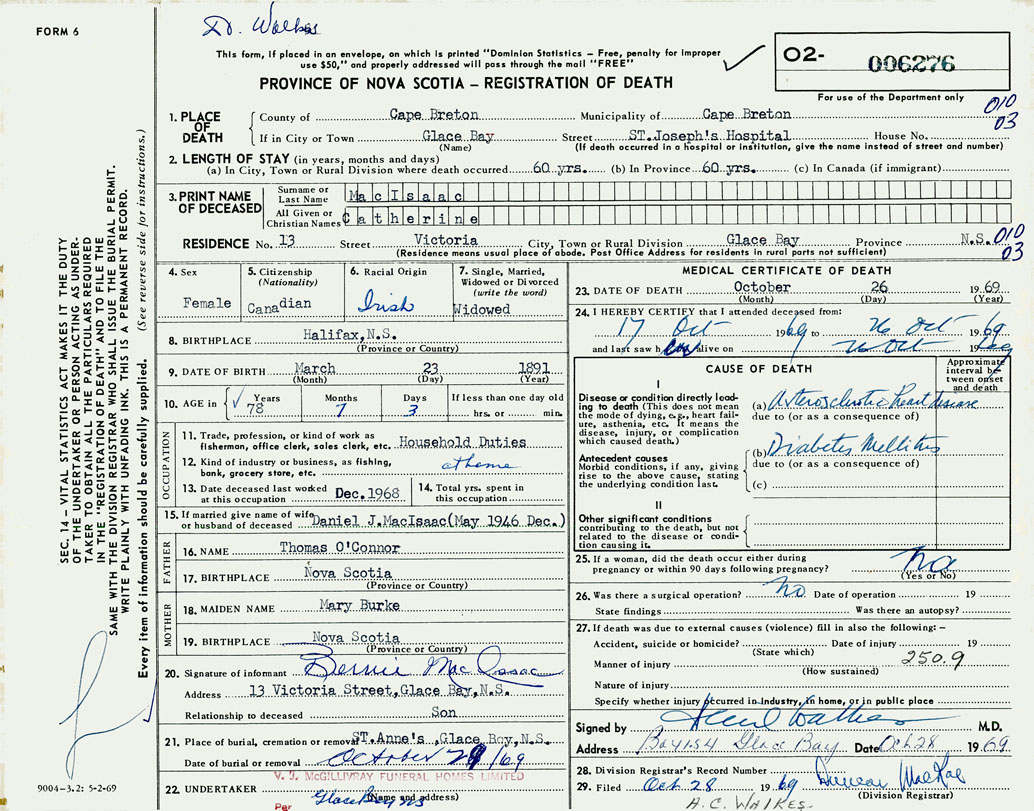 FORM 6
Dr. Walkes
This form, if placed in an envelope, on which is printed "Dominion Statistics – Free, penalty for improper
use $50," and properly addressed will pass through the mail "FREE"
PROVINCE OF NOVA SCOTIA – REGISTRATION OF DEATH
O2- 006276
For use of the Department only
010
03
1. PLACE OF DEATH
County of Cape Breton Municipality of Cape Breton
If in City or Town Glace Bay Street ST.Joseph's Hospital House No.
(Name) (If death occurred in a hospital or institution, give the name instead of street and number)
2. LENGTH OF STAY (in years, months and days)
(a) In City, Town or Rural Division where death occurred 60 yrs. (b) In Province 60 yrs. (c) In Canada (if immigrant)
3. PRINT NAME OF DECEASED
Surname or Last Name MacIsaac
All Given or Christian Names Catherine
RESIDENCE No. 13 Street Victoria City, Town or Rural Division Glace Bay Province N.S. 010
03
(Residence means usual place of abode. Post Office Address for residents in rural parts not sufficient)
4. Sex
Female
5. Citizenship
(Nationality)
Canadian
6. Racial Origin
Irish
7. Single, Married,
Widowed or Divorced
(write the word)
Widowed
8. BIRTHPLACE Halifax,N.S.
(Province or Country)
9. DATE OF BIRTH March 23 1891
(Month) (Day) (Year)
10. AGE in Years 78 Months 7 Days 3 If less than one day old
hrs. or min.
OCCUPATION
11. Trade, profession, or kind of work as
fisherman, office clerk, sales clerk, etc. Household Duties
12. Kind of industry or business, as fishing,
bank, grocery store, etc. at home
13. Date deceased last worked
at this occupation Dec.1968
14. Total yrs. spent in
this occupation
15. If married give name of wife
or husband of deceased Daniel J.MacIsaac(May 1946 Dec.)
FATHER
16. NAME Thomas O'Connor
17. BIRTHPLACE Nova Scotia
(Province or Country)
MOTHER
18. MAIDEN NAME Mary Burke
19. BIRTHPLACE Nova Scotia
(Province or Country)
20. Signature of informant Bernie MacIsaac
Address 13 Victoria Street,Glace Bay,N.S.
Relationship to deceased Son
21. Place of burial, cremation or removal ST.Anne's ,Glace Bay,N.S.
Date of burial or removal October 29/69
V. J. McGILLIVRAY FUNERAL HOMES LIMITED
22. UNDERTAKER Glace Bay NS
(Name and address)
Per
MEDICAL CERTIFICATE OF DEATH
23. DATE OF DEATH October 26 1969
(Month) (Day) (Year)
24. I HEREBY CERTIFY that I attended deceased from:
17 Oct 1969 to 26 Oct 1969
and last saw her alive on 26 Oct 1969
CAUSE OF DEATH
Approximate
interval be-
tween onset
and death
I
Disease or condition directly lead-
ing to death (This does not
mean the mode of dying, e.g., heart fail-
ure, asthenia, etc. It means the
disease, injury, or complication
which caused death.)
(a) Arterosclerotic Heart disease
due to (or as a consequence of)
Antecedent causes
Morbid conditions, if any, giving
rise to the above cause, stating
the underlying condition last.
(b) Diabetes Mellitus
due to (or as a consequence of)
(c)
II
Other significant conditions
Contributing to the death, but not
related to the disease or condi-
tion causing it.
25. If a woman, did the death occur either during
pregnancy or within 90 days following pregnancy? no
(Yes or No)
26. Was there a surgical operation? no Date of operation 19
State findings Was there an autopsy?
27. If death was due to external causes (violence) fill in also the following: –
Accident, suicide or homicide? Date of injury 19
(State which)
Manner of injury 250.9
(How sustained)
Nature of injury
Specify whether injury occurred in industry, in home, or in public place
Signed by M.D.
Address Box 154 Glace Bay Date Oct 28 1969
28. Division Registrar's Record Number
29. Filed Oct 28 1969 Duncan MacRae
(Division Registrar)
A.C. WALKES.
SEC. 14 – VITAL STATISTICS ACT MAKES IT THE DUTY
OF THE UNDERTAKER OR PERSON ACTING AS UNDER-
TAKER TO OBTAIN ALL THE PARTICULARS REQUIRED
IN THE "REGISTRATION OF DEATH" AND TO FILE THE
SAME WITH THE DIVISION REGISTRAR WHO SHALL ISSUE THE BURIAL PERMIT.
WRITE PLAINLY WITH UNFADING INK. THIS IS A PERMANENT RECORD.
Every item of information should be carefully supplied. (See reverse side for instructions.)
9004–3.2: 5-2-69